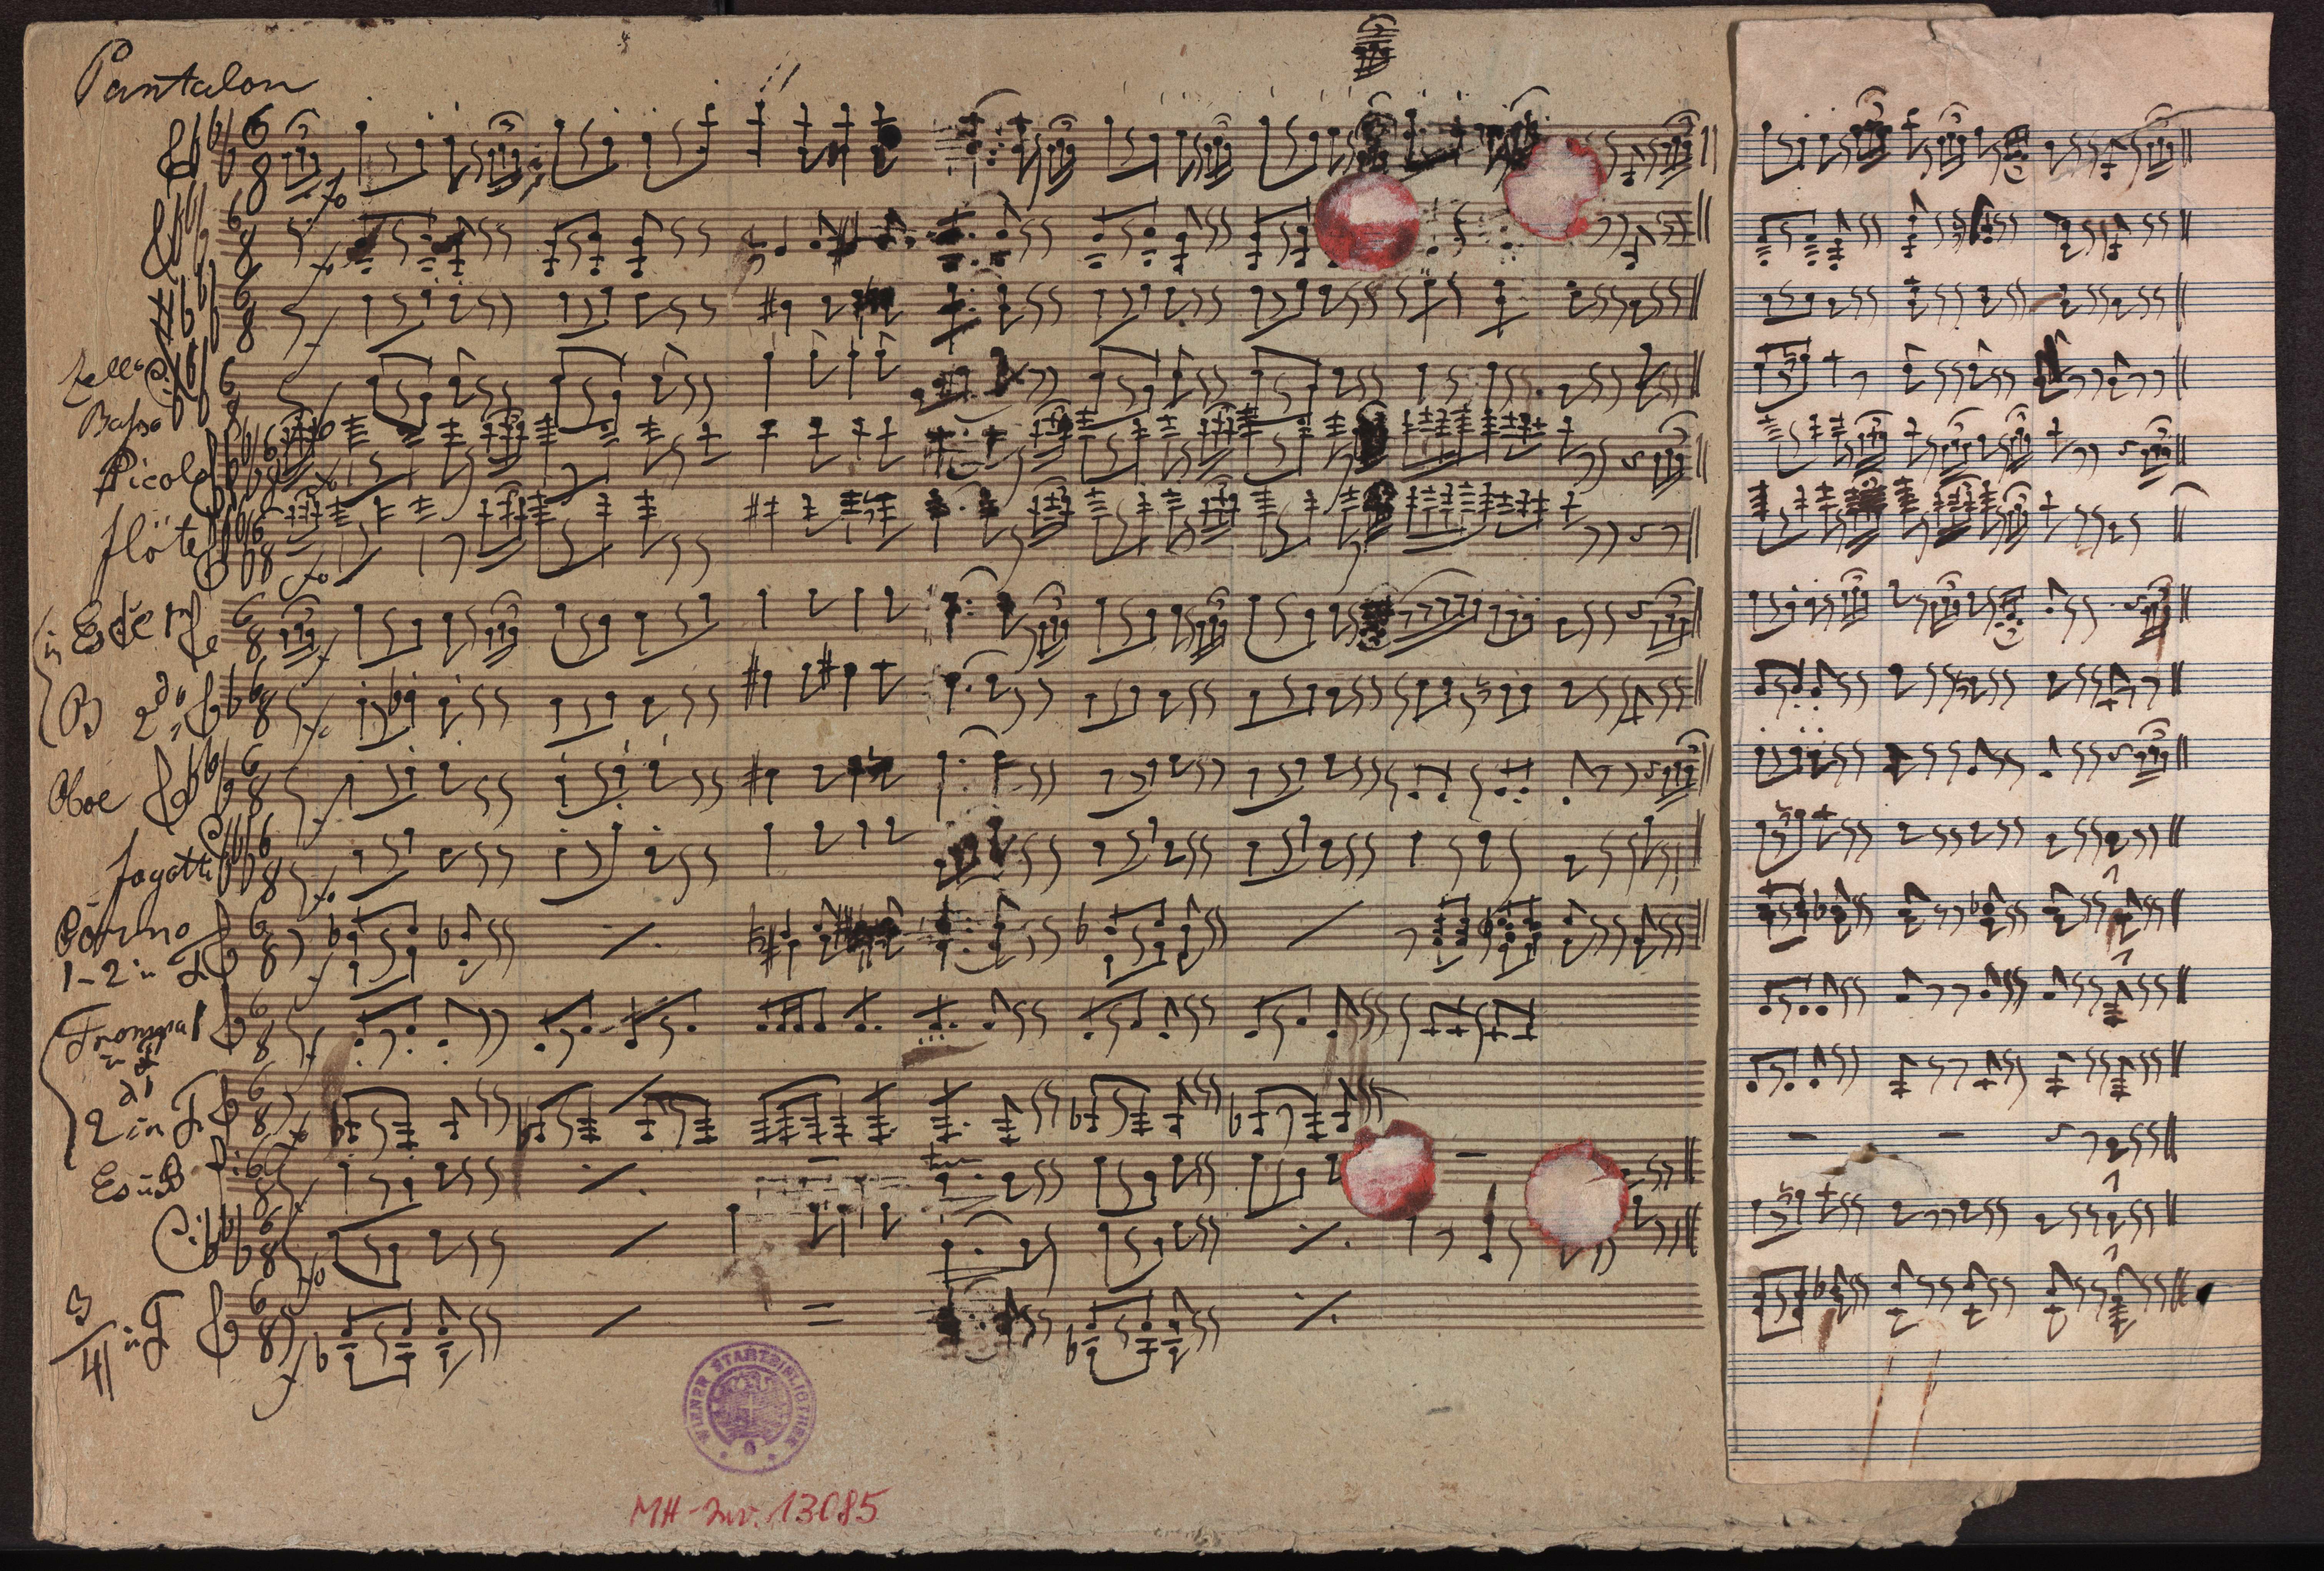 Pantalon
Zello
Basso
Picolo
flöte
in Es
B 2do
Oboe
fagotti
Corno
1-2 in F
2 in F
Es B
3/4 in F
WIENER STADTBIBLIOTHEK
MH-Inv. 13085